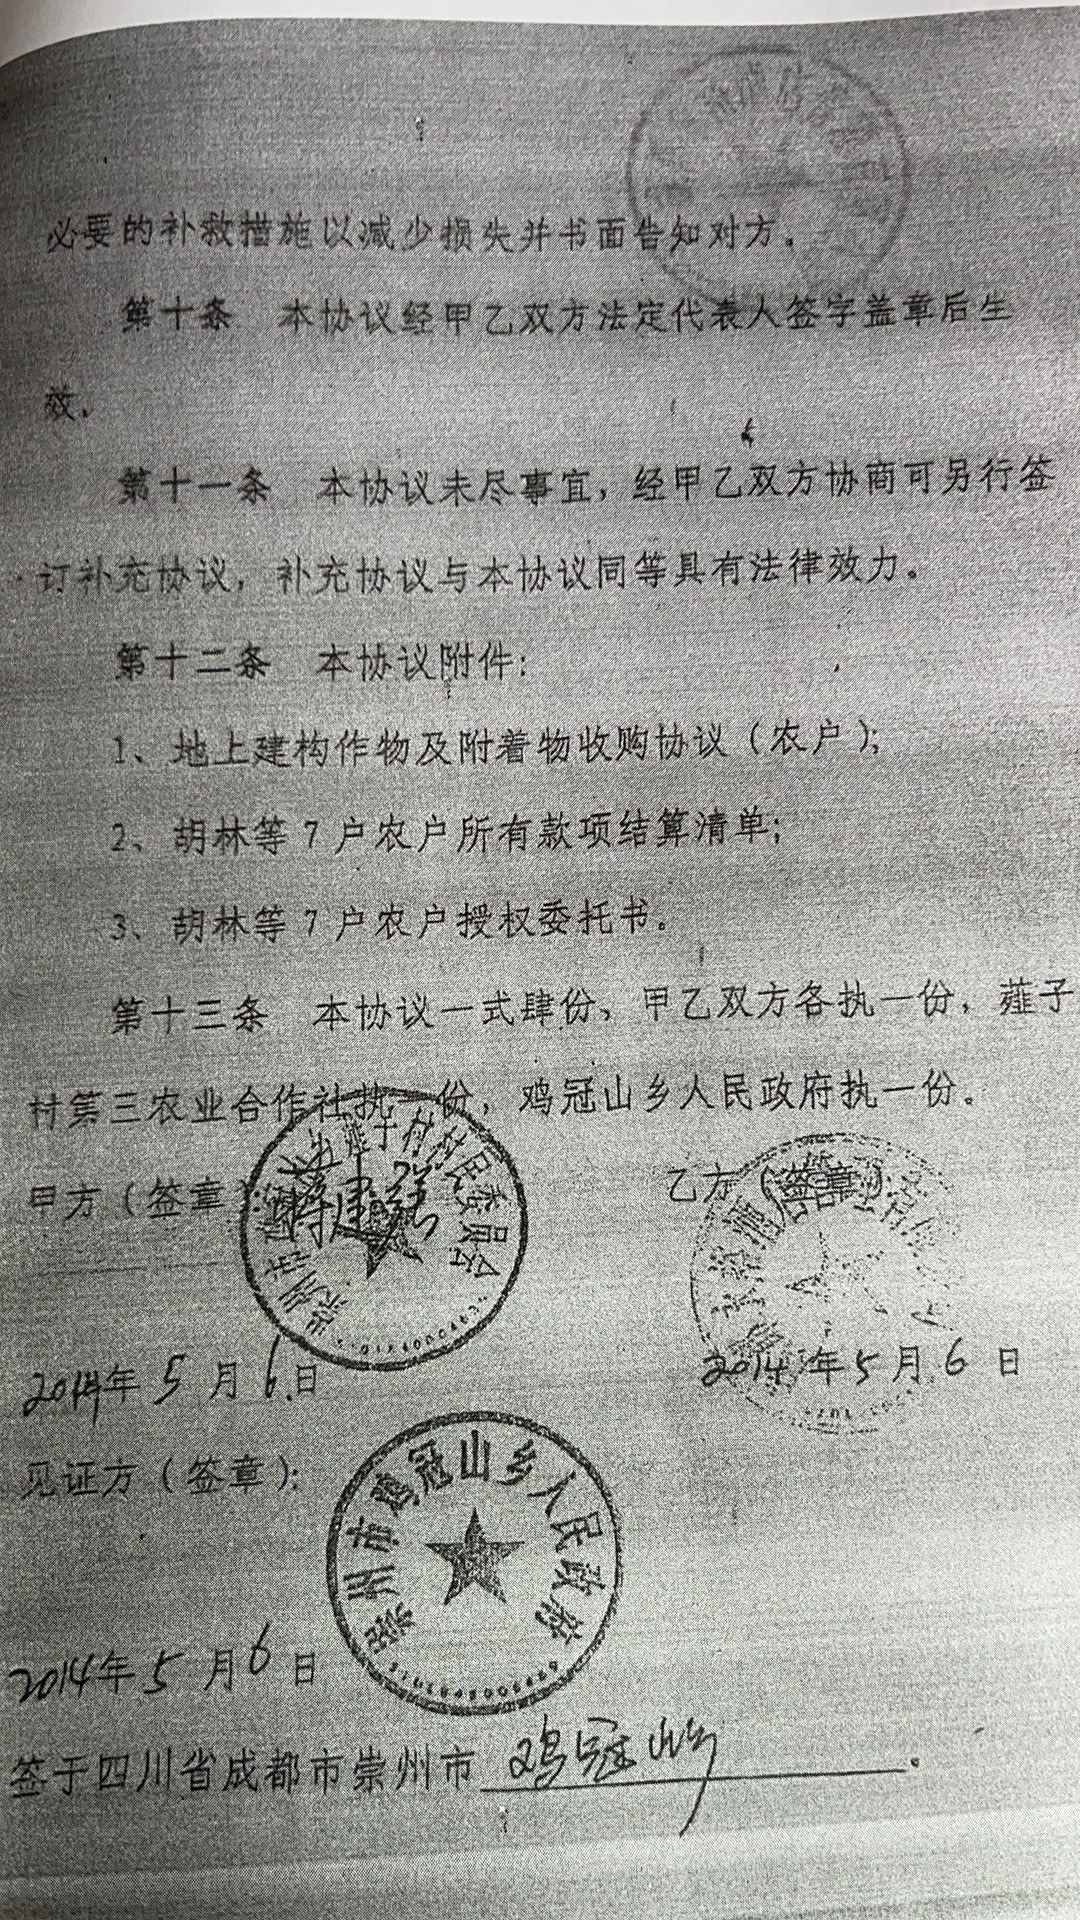 必要的补救措施以减少损失并书面告知对方。
第十条 本协议经甲乙双方法定代表人签字盖章后生
效。
第十一条 本协议未尽事宜，经甲乙双方协商可另行签
订补充协议，补充协议与本协议同等具有法律效力。
第十二条 本协议附件：
1、地上建构作物及附着物收购协议（农户）；
2、胡林等7户农户所有款项结算清单；
3、胡林等7户农户授权委托书。
第十三条 本协议一式肆份，甲乙双方各执一份，薤子
村第三农业合作社执一份，鸡冠山乡人民政府执一份。
甲方（签章） 乙方（签章）
崇州市 薤子村村民委员会
2014年5月6日 2014年5月6日
见证方（签章）：
崇州市鸡冠山乡人民政府
2014年5月6日
签于四川省成都市崇州市鸡冠山乡。